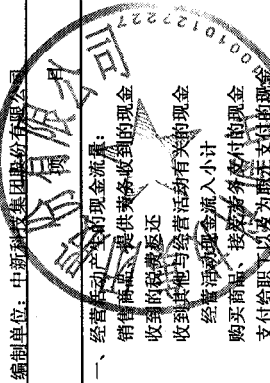 编制单位：中新科技集团股份有限公司
项目
一、经营活动产生的现金流量：
销售商品、提供劳务收到的现金
收到的税费返还
收到其他与经营活动有关的现金
经营活动现金流入小计
购买商品、接受劳务支付的现金
支付给职工以及为职工支付的现金